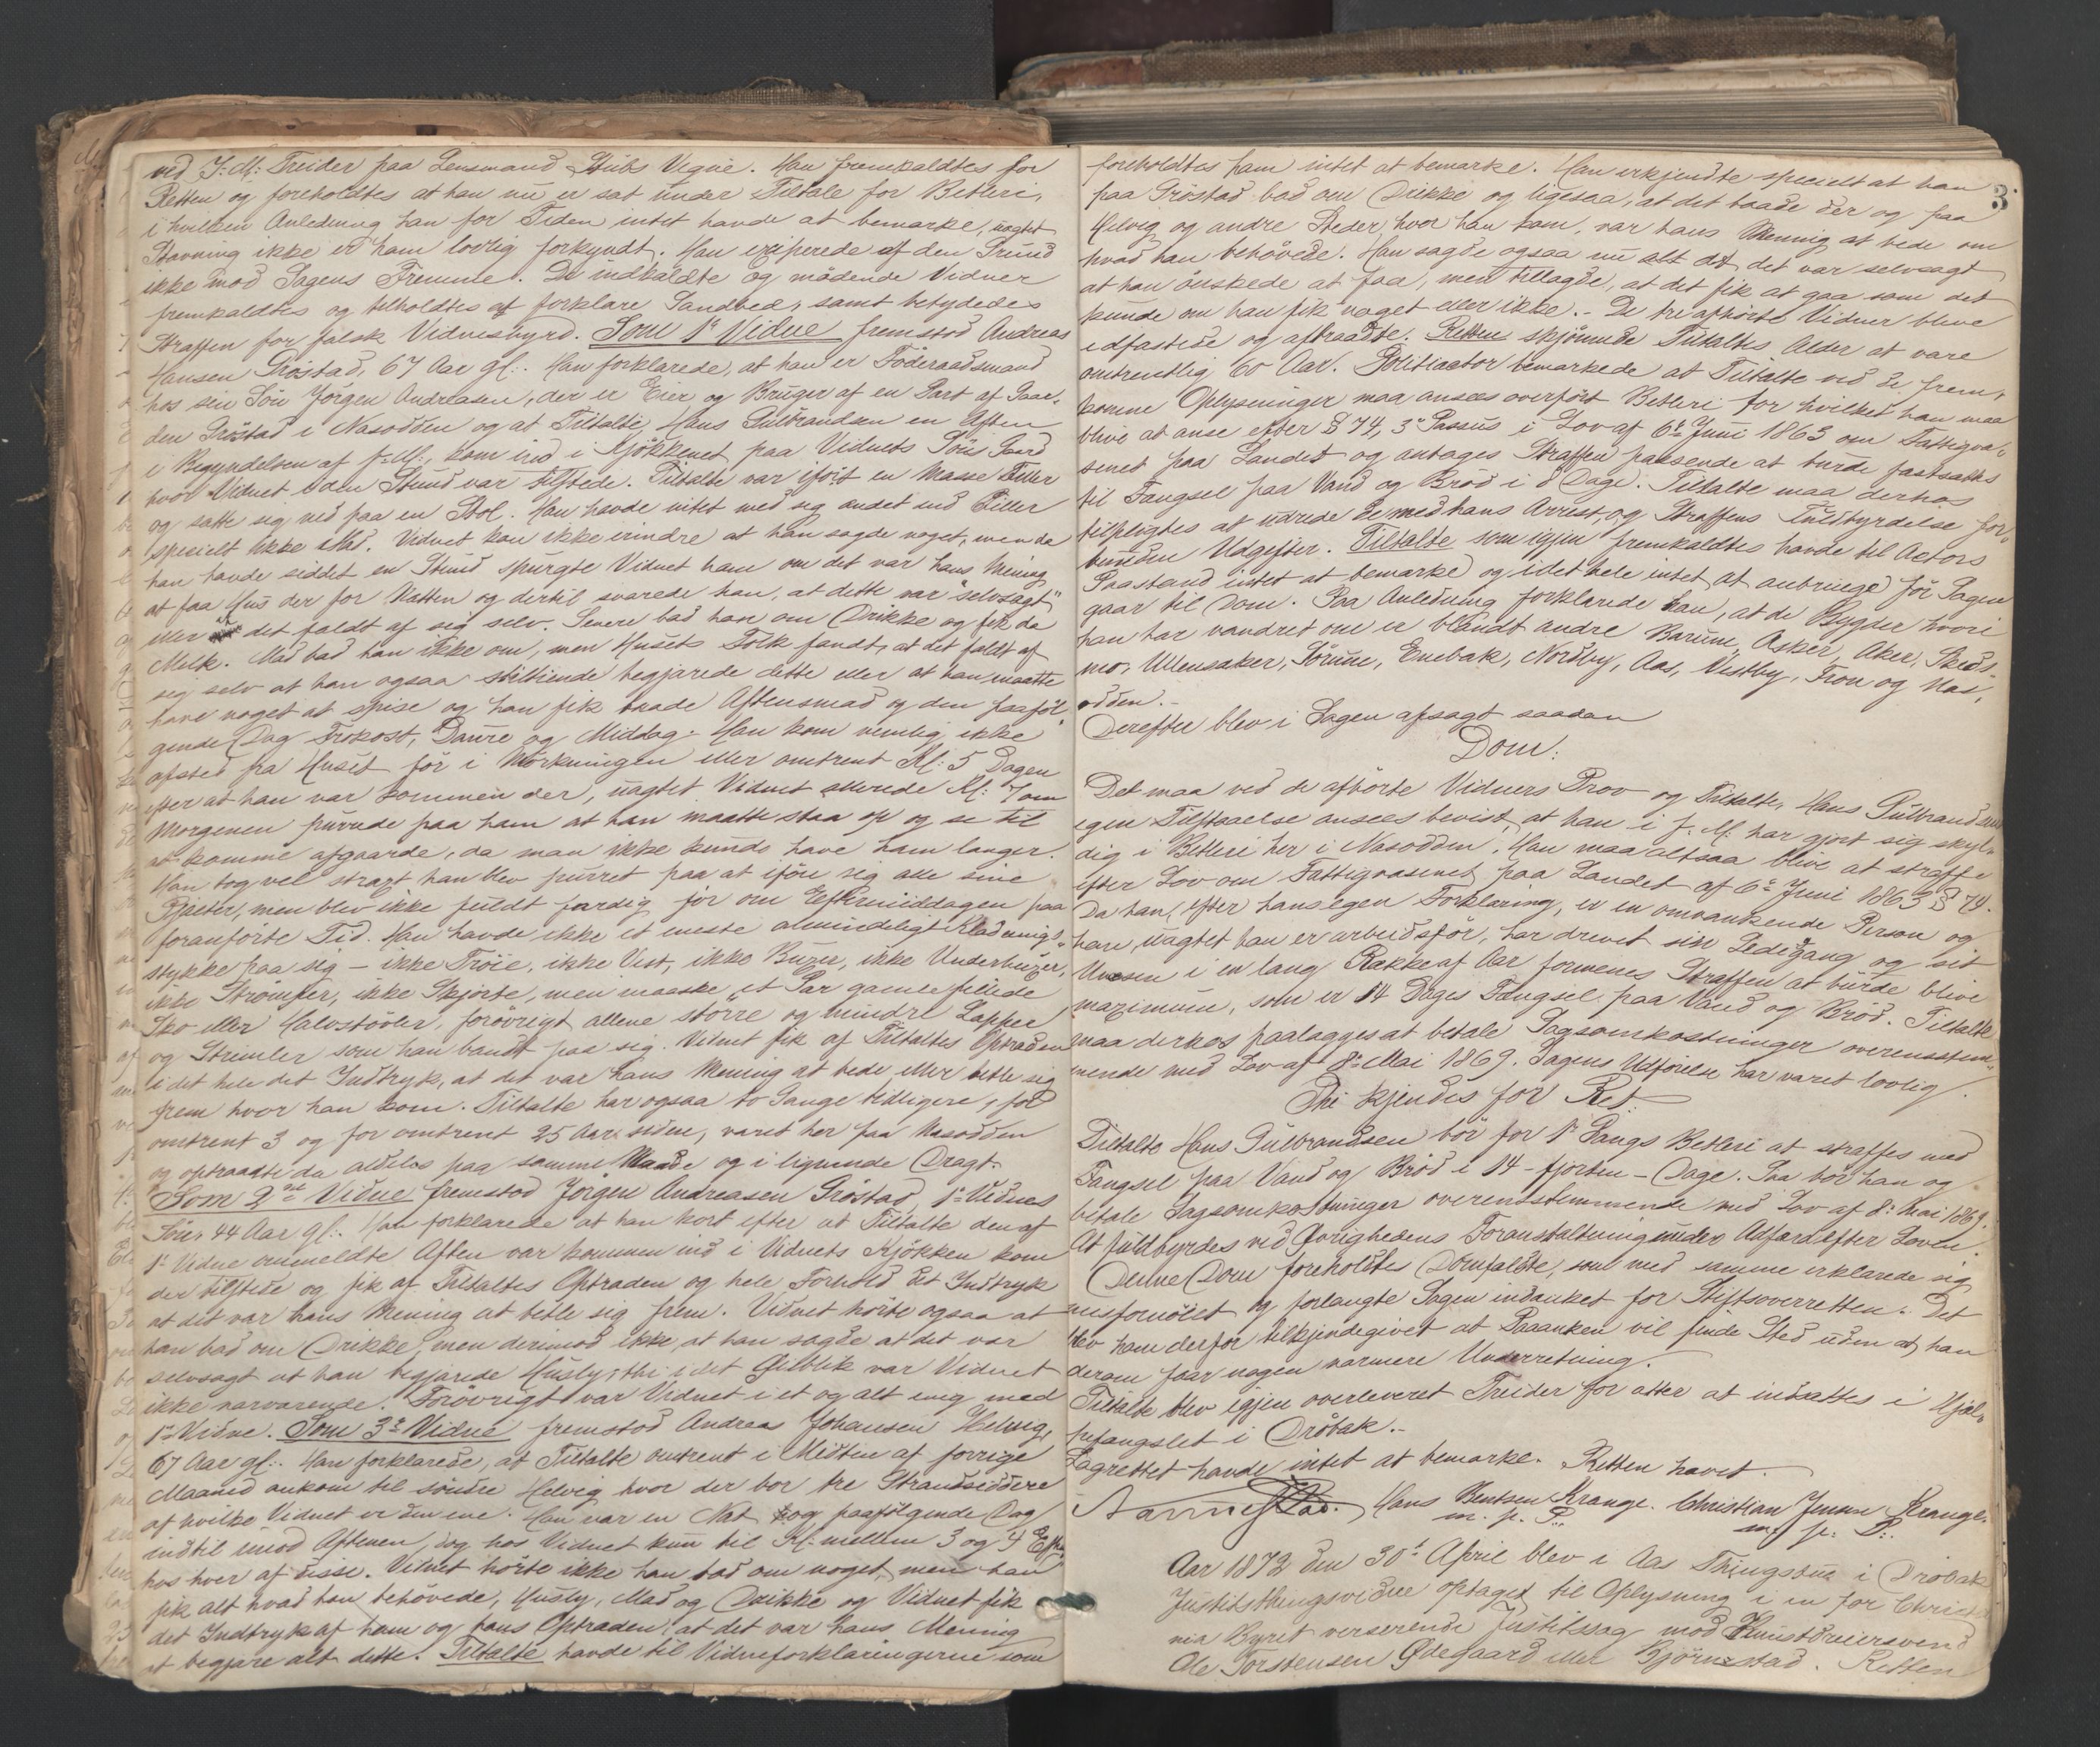 ved J: M: Treider paa Lensmand Stubs Vegne. Han fremkaldtes for
Retten og foreholdtes at han nu er sat under Tiltale for Betleri,
i hvilken Anledning han for Tiden intet havde at bemærke, uagtet
Stævning ikke er ham lovlig forkyndt. Han exiperede af den Grund
ikke mod Sagens Fremme. De indkaldte og mødende Vidner
fremkaldtes og tilholdtes at forklare Sandhed, samt betydedes
Straffen for falsk Vidnesbyrd. Som 1e Vidne fremstod Andreas
Hansen Grøstad, 67 Aar gl:. Han forklarede, at han er Föderaadsmand
hos sin Sön Jörgen Andreasen, der er Eier og Bruger af en Part af Gaar-
den Gröstad i Nasodden og at Tiltalte, Hans Gulbrandsen en Aften
i Begyndelsen af f: M:, kom ind i Kjökkenet paa Vidnets Söns Gaard
hvor Vidnet den Stund var tilstede. Tiltalte var iført en Masse Filler
og satte sig ned paa en Stol. Han havde intet med sig andet end Filler
specielt ikke Mad. Vidnet kan ikke erindre at han sagde noget, men da
han havde siddet en Stund spurgte Vidnet ham om det var hans Mening
at faa Hus der for Natten og dertil svarede han, at dette var "selvsagt"
eller at det faldt af sig selv. Senere bad han om Drikke og fik da
Melk. Mad bad han ikke om, men Husets Folk fandt, at det faldt af
sig selv at han ogsaa stiltiende begjærede dette eller at han maatte
have noget at spise og han fik baade Aftensmad og den paaföl-
gende Dag Frokost, Daure og Middag. Han kom nemlig ikke
afsted fra Huset för i Mörkningen eller omtrent Kl: 5 Dagen
efter at han var kommen der, uagtet Vidnet allerede Kl: 7 om
Morgenen purrede paa ham at han maatte staa op og se til
at komme afgaarde, da man ikke kunde have ham længer.
Han tog vel strax han blev purret paa at iföre sig alle sine
Pjalter, men blev ikke fuldt færdig för om Eftermiddagen paa
foranförte Tid. Han havde ikke et eneste almindeligt Klædnings-
stykke paa sig – ikke Tröie, ikke Vest, ikke Buxer, ikke Underbuxer,
ikke Strömper, ikke Skjorte, men maaske et Par gamle fillede
Sko eller Halvstövler, forövrigt allene större og mindre Lapper
og Strimler som han bandt paa sig. Vidnet fik af Tiltaltes Optræden
i det hele det Indtryk, at det var hans Mening at bede eller betle sig
frem hvor han kom. Tiltalte har ogsaa to Gange tidligere, for
omtrent 3 og for omtrent 25 Aar siden, været her paa Nasodden
og optraadte da aldeles paa samme Maade og i lignende Dragt.
Som 2det Vidne fremstod Jörgen Andreasen Gröstad, 1e Vidnes
Sön, 44 Aar gl:. Han forklarede at han kort efter at Tiltalte den af
1e Vidne ommeldte Aften var kommen ind i Vidnets Kjökken kom
der tilstede og fik af Tiltaltes Optræden og hele Forhold det Indtryk
at det var hans Mening at betle sig frem. Vidnet hörte ogsaa at
han bad om Drikke, men derimod ikke, at han sagde at det var
selvsagt at han begjærede Husly, thi i det Öieblik var Vidnet
ikke nærværende. Forövrigt var Vidnet i et og alt enig med
1e Vidne. Som 3e Vidne fremstod Andreas Johansen Helvig,
67 Aar gl:. Han forklarede, at Tiltalte omtrent i Midten af forrige
Maaned ankom til söndre Helvig hvor der bor tre Strandsiddere
af hvilke Vidnet er den ene. Han var en Nat og paafölgende Dag
indtil imod Aftenen, dog hos Vidnet kun til Kl: mellem 3 og 4
hos hver af disse. Vidnet hörte ikke han bad om noget, men han
fik alt hvad han behövede, Husly, Mad og Drikke og Vidnet fik
det Indtryk af ham og hans Optræden, at det var hans Mening
at begjære alt dette. Tiltalte havde til Vidneforklaringerne som
3
foreholdtes ham intet at bemærke. Han erkjendte specielt at han
paa Gröstad bad om Drikke og ligesaa, at det baade der og paa
Helvig og andre Steder, hvor han kom, var hans Mening at bede om
hvad han behövede. Han sagde ogsaa nu alt det var selvsagt
at han önskede at faa, men tillagde, at det fik at gaa som det
kunde om han fik noget eller ikke. – De tre afhörte Vidner bleve
edfæstede og aftraadte. Retten skjönnede Tiltaltes Alder at være
omtrentlig 60 Aar. Politiactor bemærkede at Tiltalte ved de frem-
komne Oplysninger maa ansees overfört Betleri for hvilket han maa
blive at anse efter § 74, 3e Passus i Lov af 6te Juni 1863 om Fattigvæ-
senet paa Landet og antages Straffen passende at burde fastsættes
til Fængsel paa Vand og Bröd i 8 Dage. Tiltalte maa derhos
tilpligtes at udrede de med hans Arrest, og Straffens Fuldbyrdelse for-
bunden Udgifter. Tiltalte som igjen fremkaldtes havde til Actors
Paastand intet at bemærke og i det hele intet at anbringe för Sagen
gaar til Dom. Paa Anledning forklarede han, at de Bygder hvori
han har vandret om er blandt andre Bærum, Asker, Aker, Skeds-
mo, Ullensaker, Sörum, Enebak, Nordby, Aas, Vestby, Fron og Næs-
odden. –
Derefter blev i Sagen afsagt saadan
Dom:
Det maa ved de afhörte Vidners Prov og Tiltalte, Hans Gulbrandsens
egen Tilstaaelse ansees bevist, at han i f: M: har gjort sig skyl-
dig i Betleri her i Nasodden. Han maa altsaa blive at straffe
efter Lov om Fattigvæsenet paa Landet af 6te Juni 1863 § 74.
Da han, efter hans egen Forklaring, er en omvankende Person og
han, uagtet han er arbeidsför, har drevet sin Ledegang og sit
Uvæsen i en lang Række af Aar formenes Straffen at burde blive
maximum, som er 14 Dages Fængsel paa Vand og Bröd. Tiltalte
maa derhos paalægges at betale Sagsomkostninger overensstem-
mende med Lov af 8de Mai 1869. Sagens Udförelse har været lovlig.
Thi kjendes for Ret:
Tiltalte Hans Gulbrandsen bör for 1e Gangs Betleri at straffes med
Fængsel paa Vand og Bröd i 14 – fjorten – Dage. Saa bör han og
betale Sagsomkostninger overensstemmende med Lov af 8de Mai 1869.
At fuldbyrdes ved Övrighedens Foranstaltning under Adfærd efter Loven.
Denne Dom foreholdtes Domfældte, som med samme erklærede sig
misfornöiet og forlangte Sagen indanket for Stiftsoverretten. Det
blev ham derfor tilkjendegivet at Paaanken vil finde Sted uden at han
derom faar nogen nærmere Underretning.
Tiltalte blev igjen overleveret Treider for atter at indsættes i Hjæl-
pefængslet i Dröbak. –
Lagrettet havde intet at bemærke. Retten hævet.
Hans Bentsen Krange. Christian Jensen Krange.
m. p. P. m. p. P.
Aar 1872 den 30te April blev i Aas Thingstue i Dröbak
Justitsthingsvidne optaget til Oplysning i en for Christia
nia Byret verserende Justitssag mod Kunstdreiersvend
Ole Torstensen Ødegaard eller Björnstad. Retten